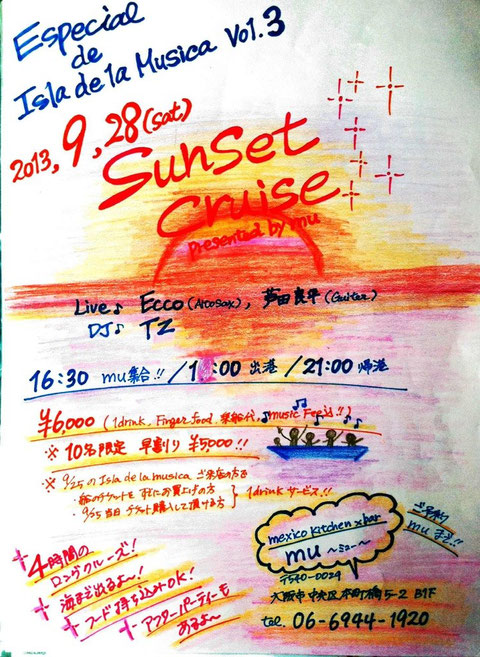 Especial
de
Isla de la Musica Vol.3
2013, 9, 28 (sat)
Sunset
Cruise
presented by mu
Live♪ Ecco (Alto sax), 芦田良平 (Guitar)
DJ♪ TZ
16:30 mu集合!! / :00 出港 / 21:00 帰港
¥6,000 (1drink, Finger food, 乗船代, music Feeは!!)
※ 10名限定 早割り ¥5,000!!
※ 9/25のIsla de la musica ご来店の方で
・船のチケットを すでにお買上げの方
・9/25当日 チケット購入して頂ける方 } 1drinkサービス!!
+ 4時間の
ロングクルーズ!
+ 海まで出るよ〜!
+ フード持ち込みOK!
+ アフターパーティーも
あるよ〜
ご予約
muまで!!
mexico kitchen x bar
mu 〜ミュー〜
〒540-0029
大阪市中央区本町橋5-2 B1F
tel. 06-6944-1920